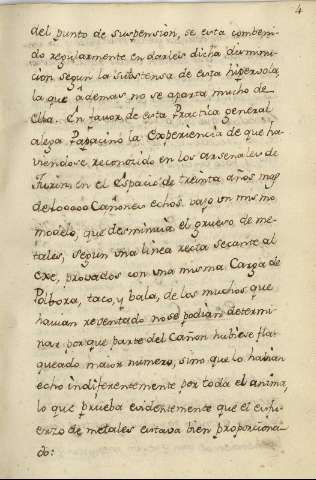 4
del punto de suspension, se està combeni-
do regularmente en darles dicha diminu-
cion segun la substensa de esta hipersola,
la que àdemas no se aparta mucho de
ella. En favor de esta Practica general
alega Papacino la Experiencia de que ha-
viendose reconozido en los arsenales de
Turin en el Espacio de treinta años mas
de 100000 Cañones echos vajo un mismo
modelo, que desminuia el grueso de me-
tales, segun una linea recta secante al
exe, provados con una misma Carga de
Polbora, taco, y bala, de los muchos que
havian reventado no se podian determi-
nar por que parte del Cañon hubiese fla-
queado maior numero, sino que lo havian
echo indiferentemente por toda el anima,
lo que prueba evidentemente que el esfu-
erzo de metales estava bien proporciona-
do: